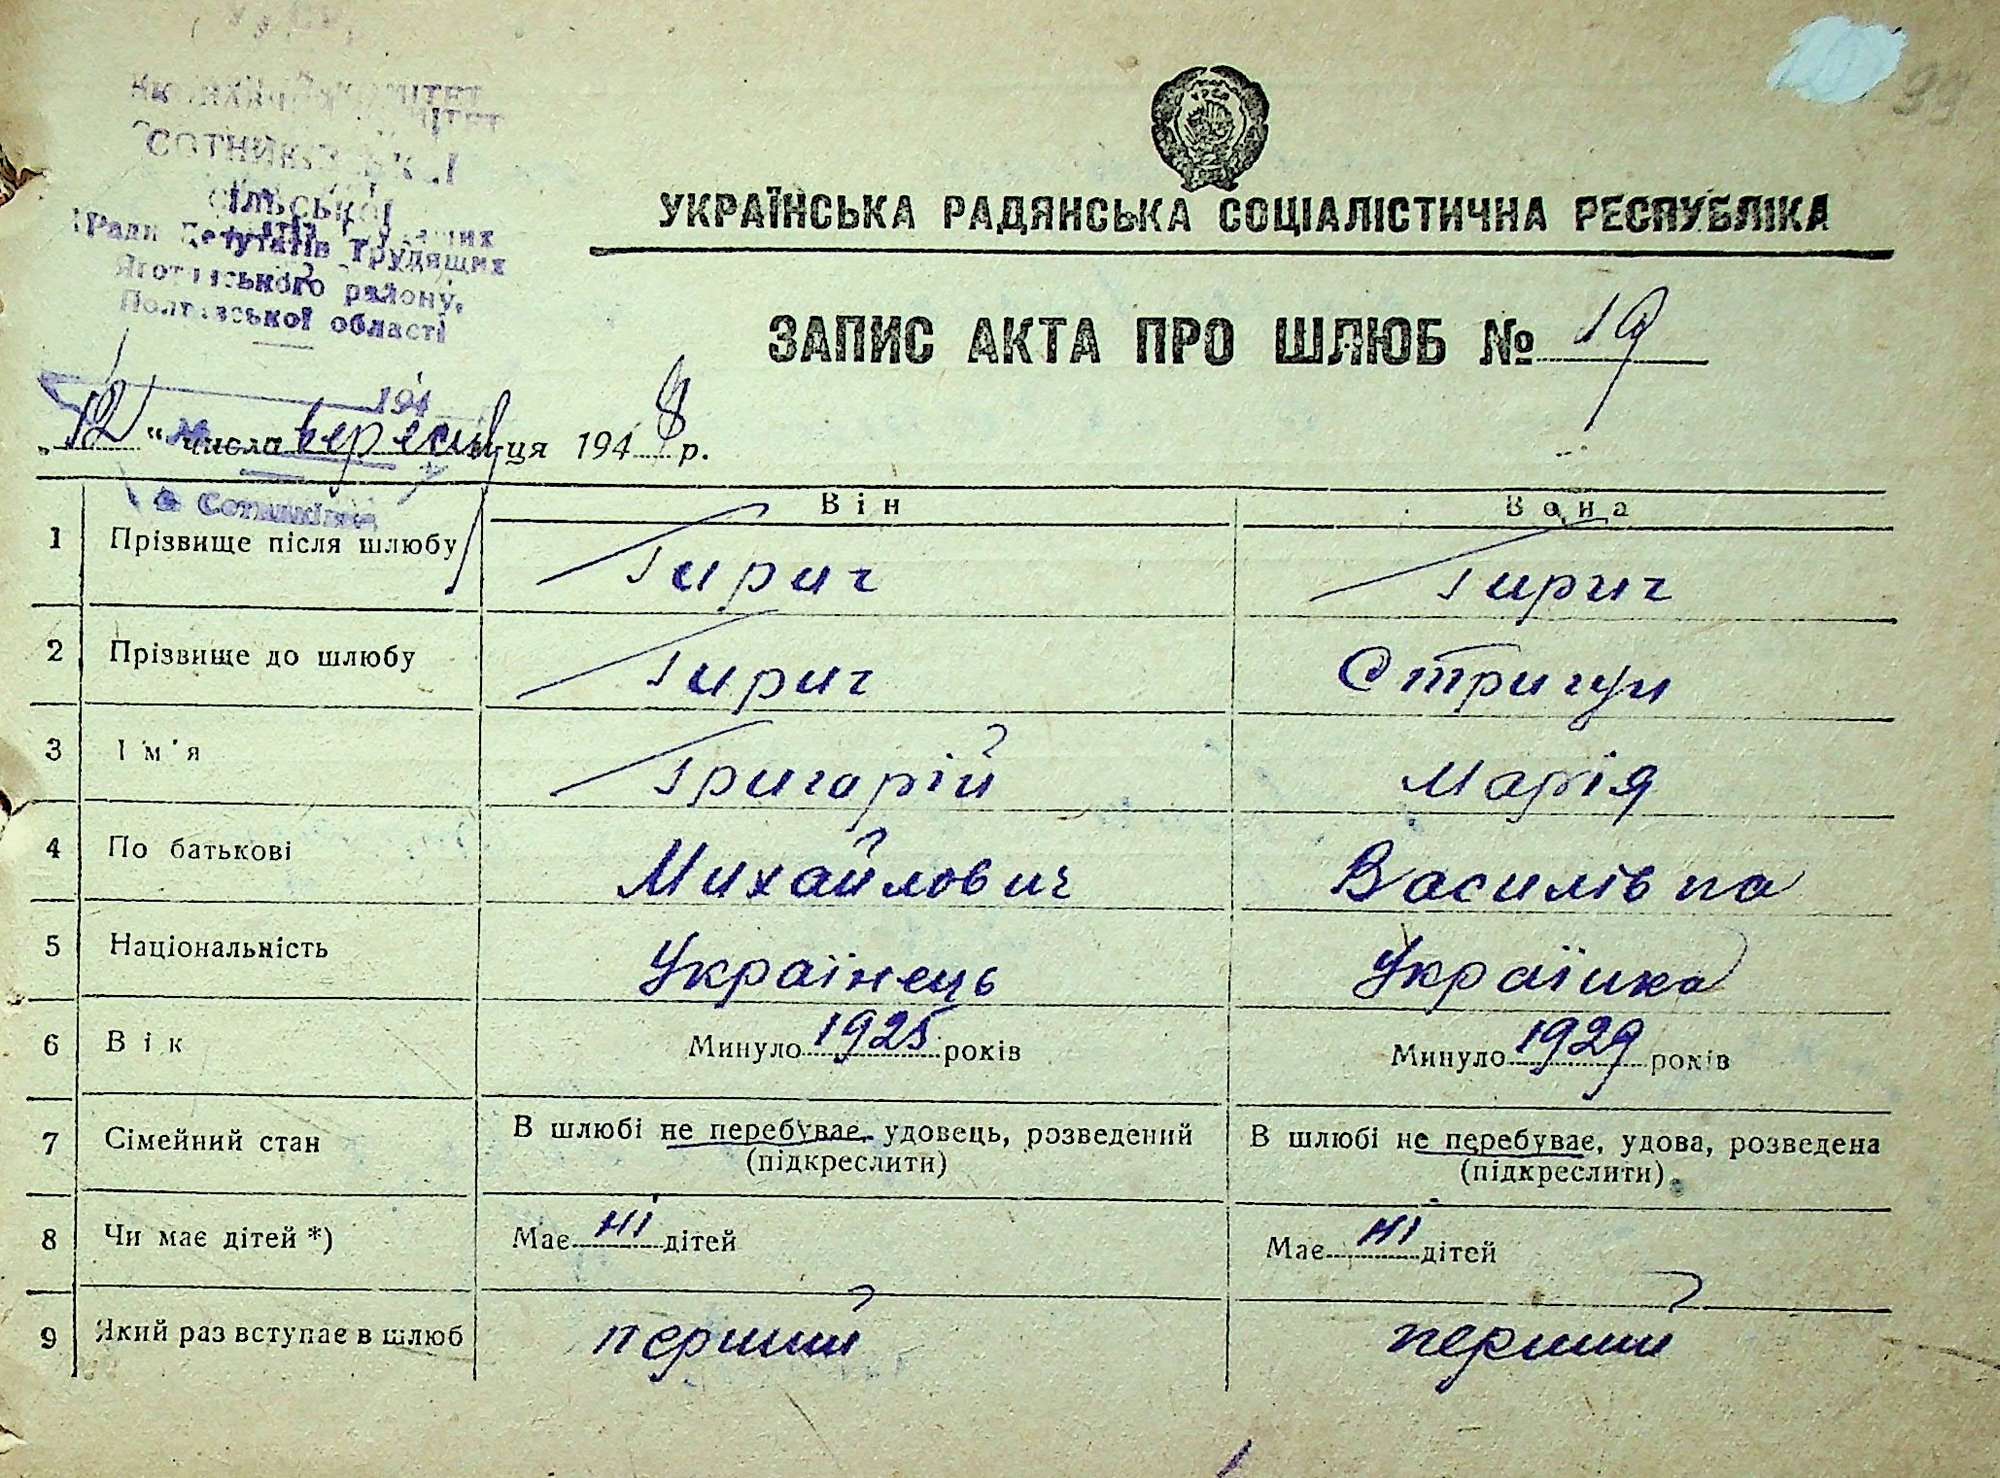 СОТНИКІВСЬКОЇ
сільської
Ради Депутатів Трудящих
Яготинського району,
Полтавської області
194
с. Сотниківка
39
УКРАЇНСЬКА РАДЯНСЬКА СОЦІАЛІСТИЧНА РЕСПУБЛІКА
ЗАПИС АКТА ПРО ШЛЮБ № 19
„12“ числа вересня ця 1948 р.
Він Вона
1 Прізвище після шлюбу Гирич Гирич
2 Прізвище до шлюбу Гирич Стригун
3 Ім'я Григорій Марія
4 По батькові Михайлович Василівна
5 Національність Українець Українка
6 Вік Минуло 1925 років Минуло 1929 років
7 Сімейний стан В шлюбі не перебуває, удовець, розведений В шлюбі не перебуває, удова, розведена
(підкреслити) (підкреслити)
8 Чи має дітей *) Має ні дітей Має ні дітей
9 Який раз вступає в шлюб перший перший